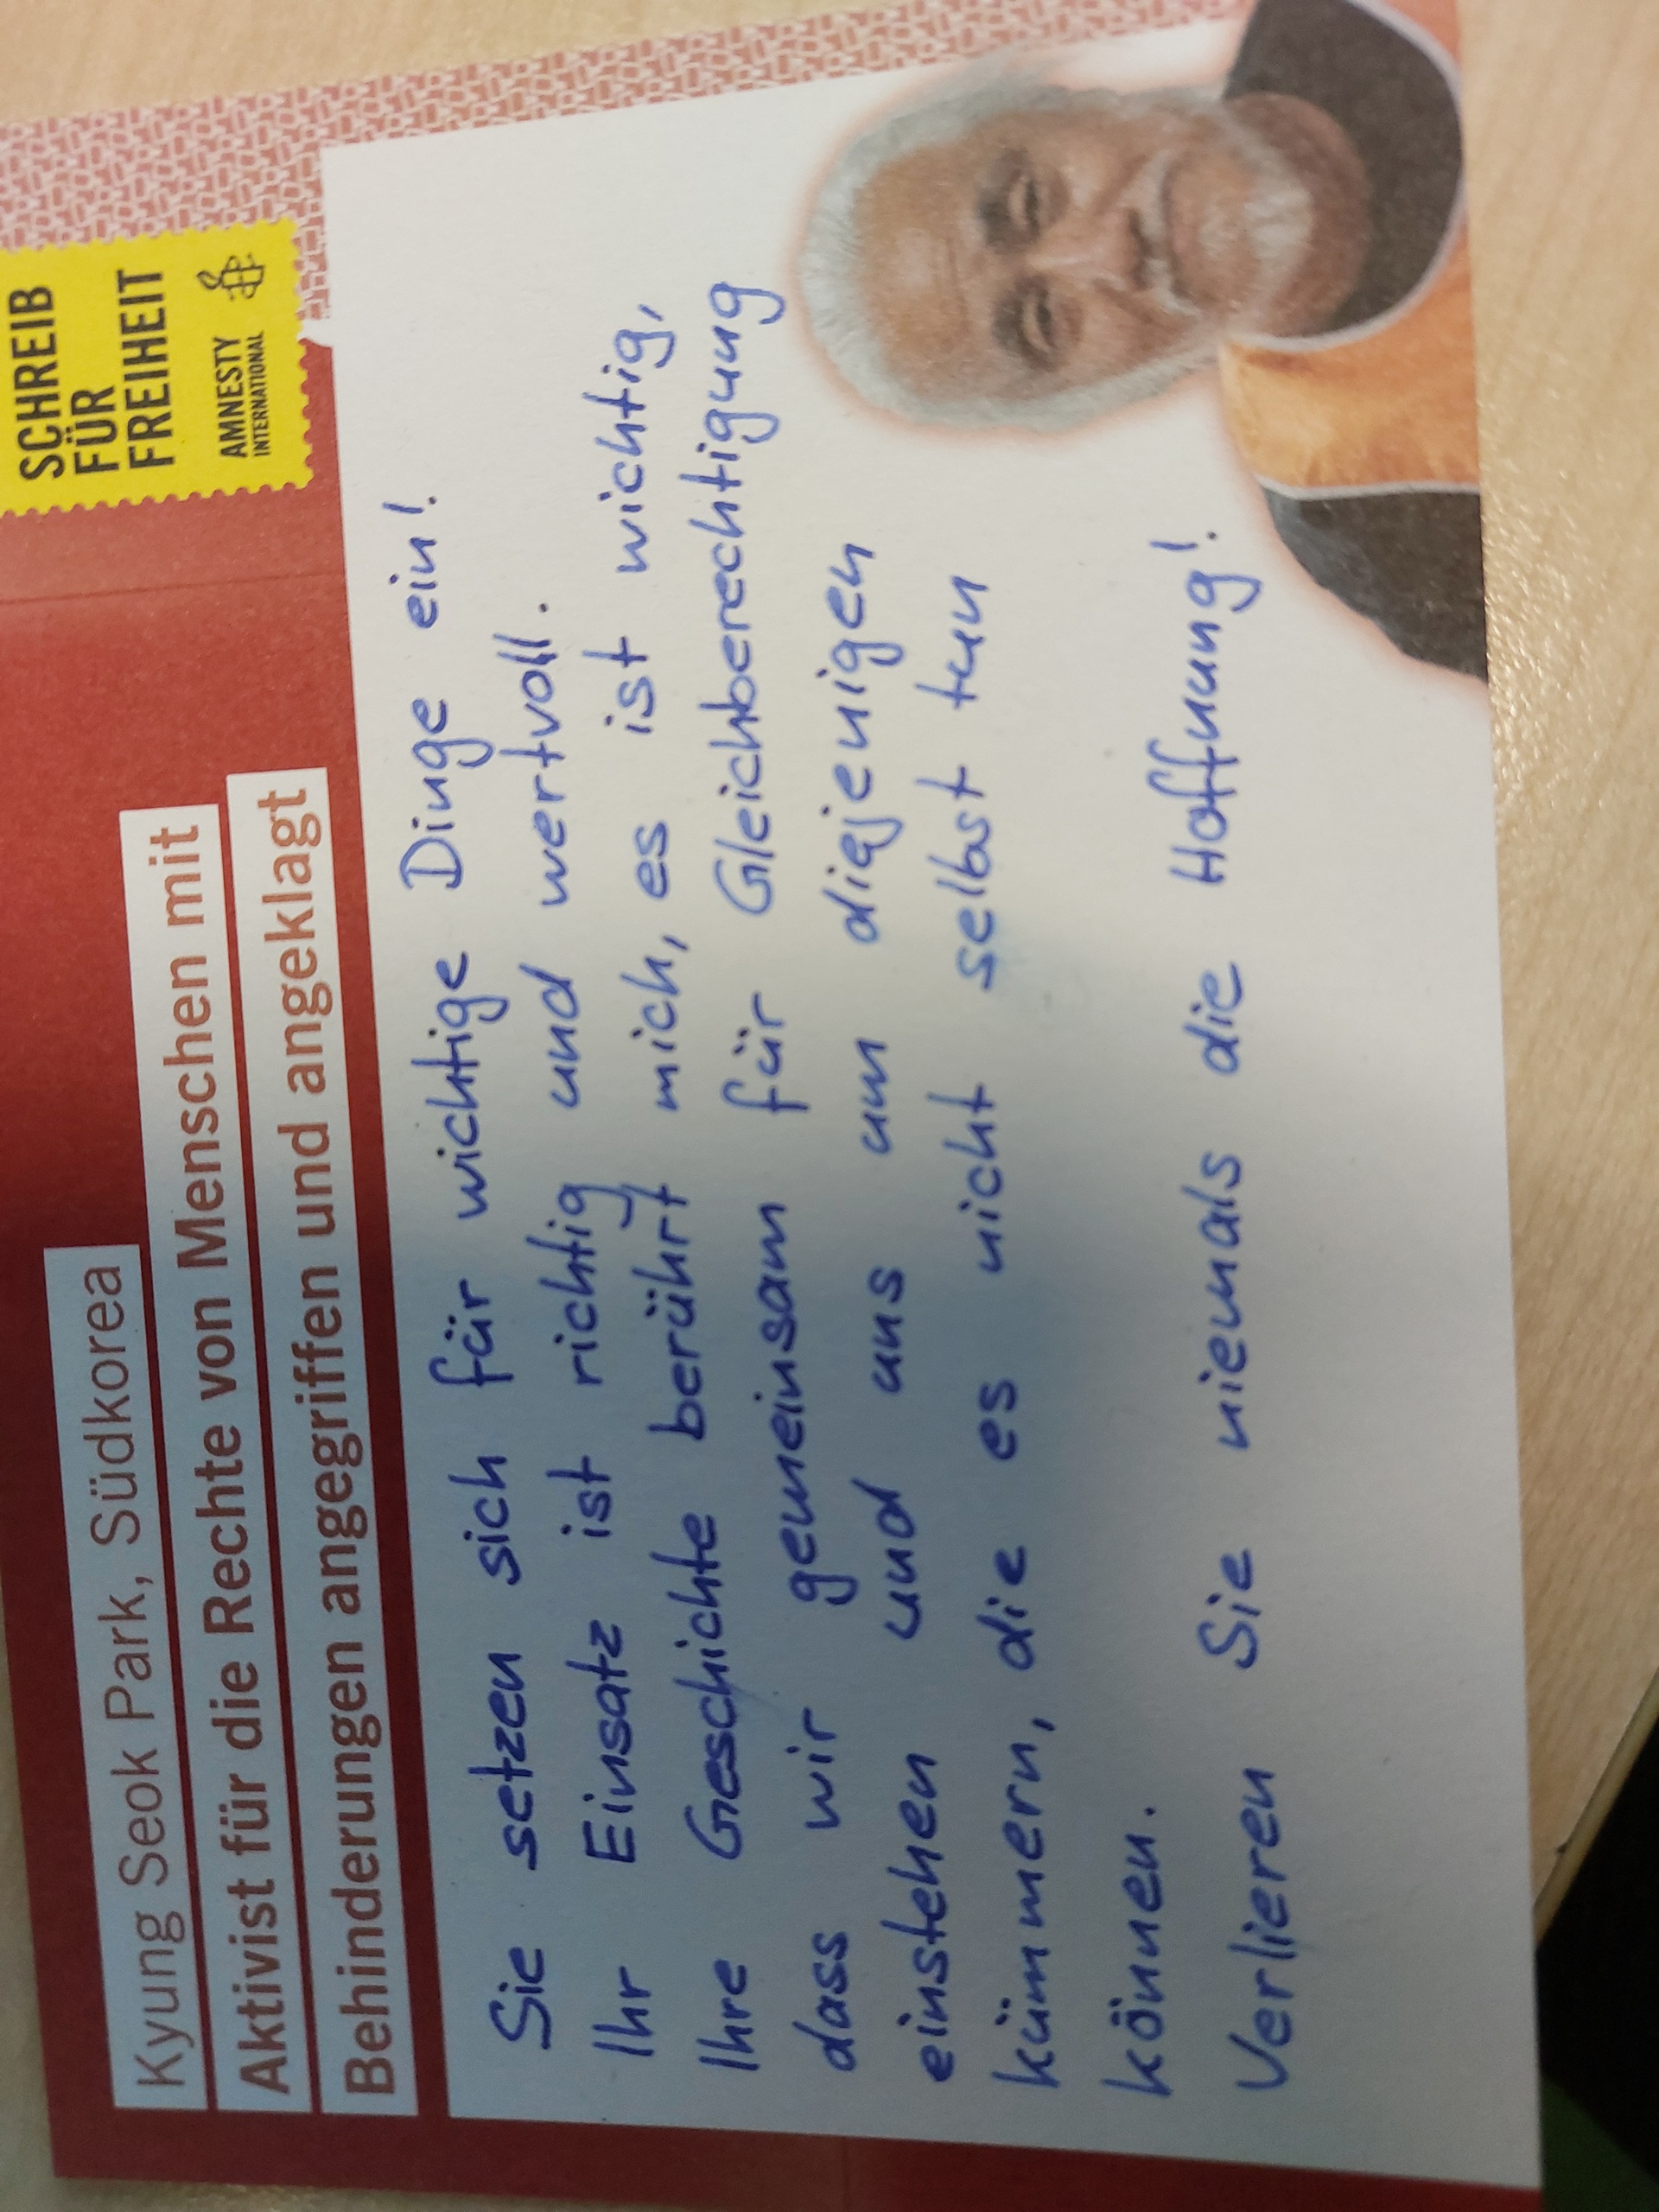 Kyung Seok Park, Südkorea
Aktivist für die Rechte von Menschen mit
Behinderungen angegriffen und angeklagt
SCHREIB
FÜR
FREIHEIT
AMNESTY
INTERNATIONAL
Sie setzen sich für wichtige Dinge ein!
Ihr Einsatz ist richtig und wertvoll.
Ihre Geschichte berührt mich, es ist wichtig,
dass wir gemeinsam für Gleichberechtigung
einstehen und uns um diejenigen
kümmern, die es nicht selbst tun
können.
Verlieren Sie niemals die Hoffnung!